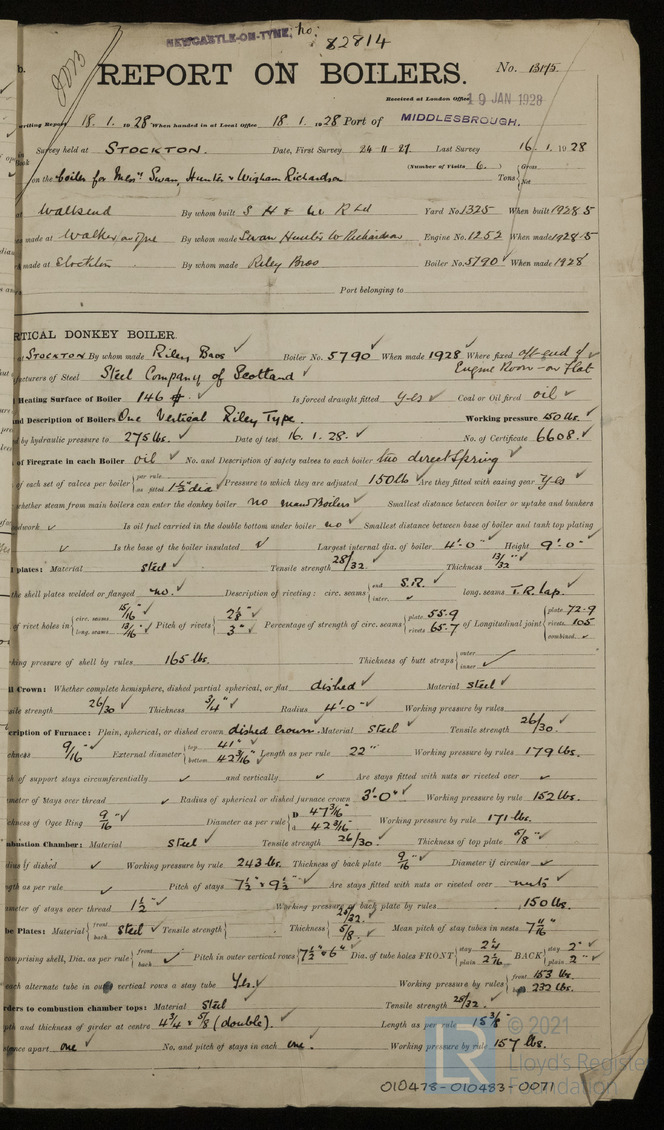 NEWCASTLE-ON-TYNE, No: 82814
REPORT ON BOILERS. No. 13175
Received at London Office 19 JAN 1928
writing Report 18. 1. 1928 When handed in at Local Office 18. 1. 1928 Port of MIDDLESBROUGH.
Survey held at STOCKTON. Date, First Survey 24-11-27 Last Survey 16. 1. 1928
(Number of Visits 6.) Gross
on the boiler for Messrs Swan, Hunter & Wigham Richardson Tons Net
at Wallsend By whom built S H & W R Ltd Yard No 1325 When built 1928-5
made at Walker on Tyne By whom made Swan Hunter W Richardson Engine No. 1252 When made 1928-5
made at Stockton By whom made Riley Bros Boiler No. 5790 When made 1928
Port belonging to
RTICAL DONKEY BOILER.
at STOCKTON By whom made Riley Bros Boiler No. 5790 When made 1928 Where fixed aft end of
Engine Room - on flat
facturers of Steel Steel Company of Scotland
Heating Surface of Boiler 146 Is forced draught fitted yes Coal or Oil fired oil
and Description of Boilers One Vertical Riley Type. Working pressure 150 lbs.
d by hydraulic pressure to 275 lbs. Date of test 16. 1. 28. No. of Certificate 6608.
of Firegrate in each Boiler oil No. and Description of safety valves to each boiler two direct Spring
of each set of valves per boiler per rule as fitted 1½" dia Pressure to which they are adjusted 150 lb Are they fitted with easing gear yes
whether steam from main boilers can enter the donkey boiler no main Boilers Smallest distance between boiler or uptake and bunkers
odwork ✓ Is oil fuel carried in the double bottom under boiler no ✓ Smallest distance between base of boiler and tank top plating
✓ Is the base of the boiler insulated ✓ Largest internal dia. of boiler 4'-0" Height 9'-0"
l plates: Material steel Tensile strength 28/32 Thickness 13/32"
the shell plates welded or flanged no. Description of riveting: circ. seams end S.R. inter. ✓ long. seams T.R. Lap.
of rivet holes in circ. seams 15/16" long. seams 13/16" Pitch of rivets 2⅛" 3" Percentage of strength of circ. seams plate 55.9 rivets 65.7 of Longitudinal joint plate 72.9 rivets 105 combined ✓
rking pressure of shell by rules 165 lbs. Thickness of butt straps outer inner ✓
ll Crown: Whether complete hemisphere, dished partial spherical, or flat dished Material steel
sile strength 26/30 Thickness ¾" Radius 4'-0" Working pressure by rules
cription of Furnace: Plain, spherical, or dished crown dished Crown. Material steel Tensile strength 26/30.
ckness 9/16" External diameter top 41" bottom 42 3/16" Length as per rule 22" Working pressure by rules 179 lbs.
ch of support stays circumferentially ✓ and vertically ✓ Are stays fitted with nuts or riveted over ✓
meter of Stays over thread ✓ Radius of spherical or dished furnace crown 3'-0" Working pressure by rule 152 lbs.
ckness of Ogee Ring 9/16" Diameter as per rule D 47 3/16" d 42 9/16" Working pressure by rule 171 lbs.
mbustion Chamber: Material Steel Tensile strength 26/30. Thickness of top plate 5/8"
dius if dished ✓ Working pressure by rule 243 lbs. Thickness of back plate 9/16" Diameter if circular ✓
ngth as per rule ✓ Pitch of stays 7½" x 9½" Are stays fitted with nuts or riveted over nuts
ameter of stays over thread 1½" Working pressure of back plate by rules 150 lbs.
be Plates: Material front back steel Tensile strength 28/32. Thickness 5/8" Mean pitch of stay tubes in nests 7 11/16"
comprising shell, Dia. as per rule front back ✓ Pitch in outer vertical rows 7½" x 6" Dia. of tube holes FRONT stay 2¼ plain 2 1/16 BACK stay 2" plain 2"
each alternate tube in outer vertical rows a stay tube Yes. Working pressure by rules front 153 lbs. back 232 lbs.
rders to combustion chamber tops: Material Steel Tensile strength 28/32
pth and thickness of girder at centre 4¾ x 5/8 (double). Length as per rule 15 3/8"
stance apart one No. and pitch of stays in each one. Working pressure by rule 157 lbs.
© 2021
Lloyd's Register
Foundation
010478-010483-0071